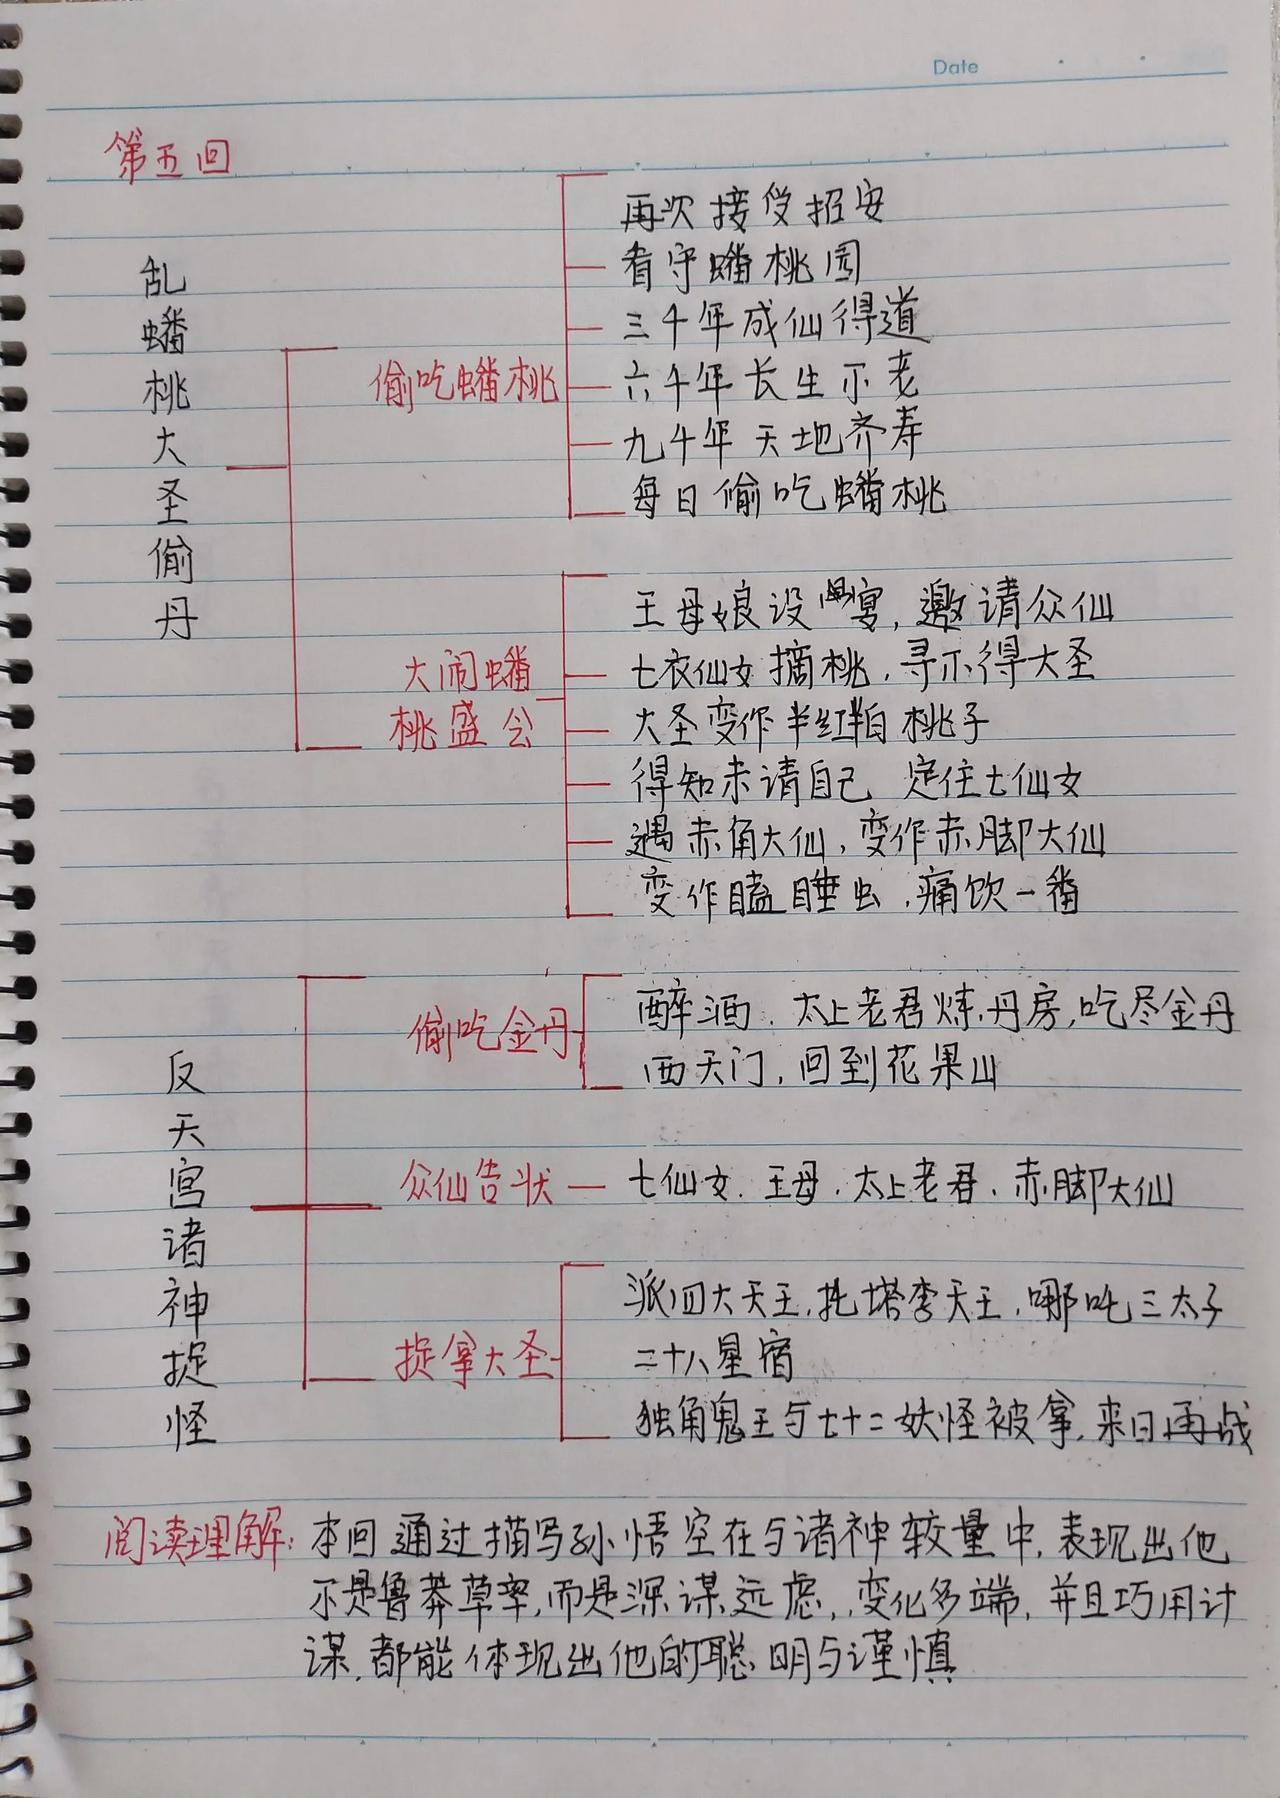 Date
第五回
乱蟠桃大圣偷丹
偷吃蟠桃
再次接受招安
看守蟠桃园
三千年成仙得道
六千年长生不老
九千年天地齐寿
每日偷吃蟠桃
大闹蟠
桃盛会
王母娘设宴，邀请众仙
七衣仙女摘桃，寻不得大圣
大圣变作半红半白桃子
得知未请自己 定住七仙女
遇赤角大仙，变作赤脚大仙
变作瞌睡虫，痛饮一番
反天宫诸神捉怪
偷吃金丹
醉酒、太上老君炼丹房，吃尽金丹
西天门，回到花果山
众仙告状
七仙女、王母、太上老君、赤脚大仙
捉拿大圣
派四大天王，托塔李天王，哪吒三太子
二十八星宿
独角鬼王与七十二妖怪被拿，来日再战
阅读理解：本回通过描写孙悟空在与诸神较量中，表现出他
不是鲁莽草率，而是深谋远虑，变化多端，并且巧用计
谋，都能体现出他的聪明与谨慎